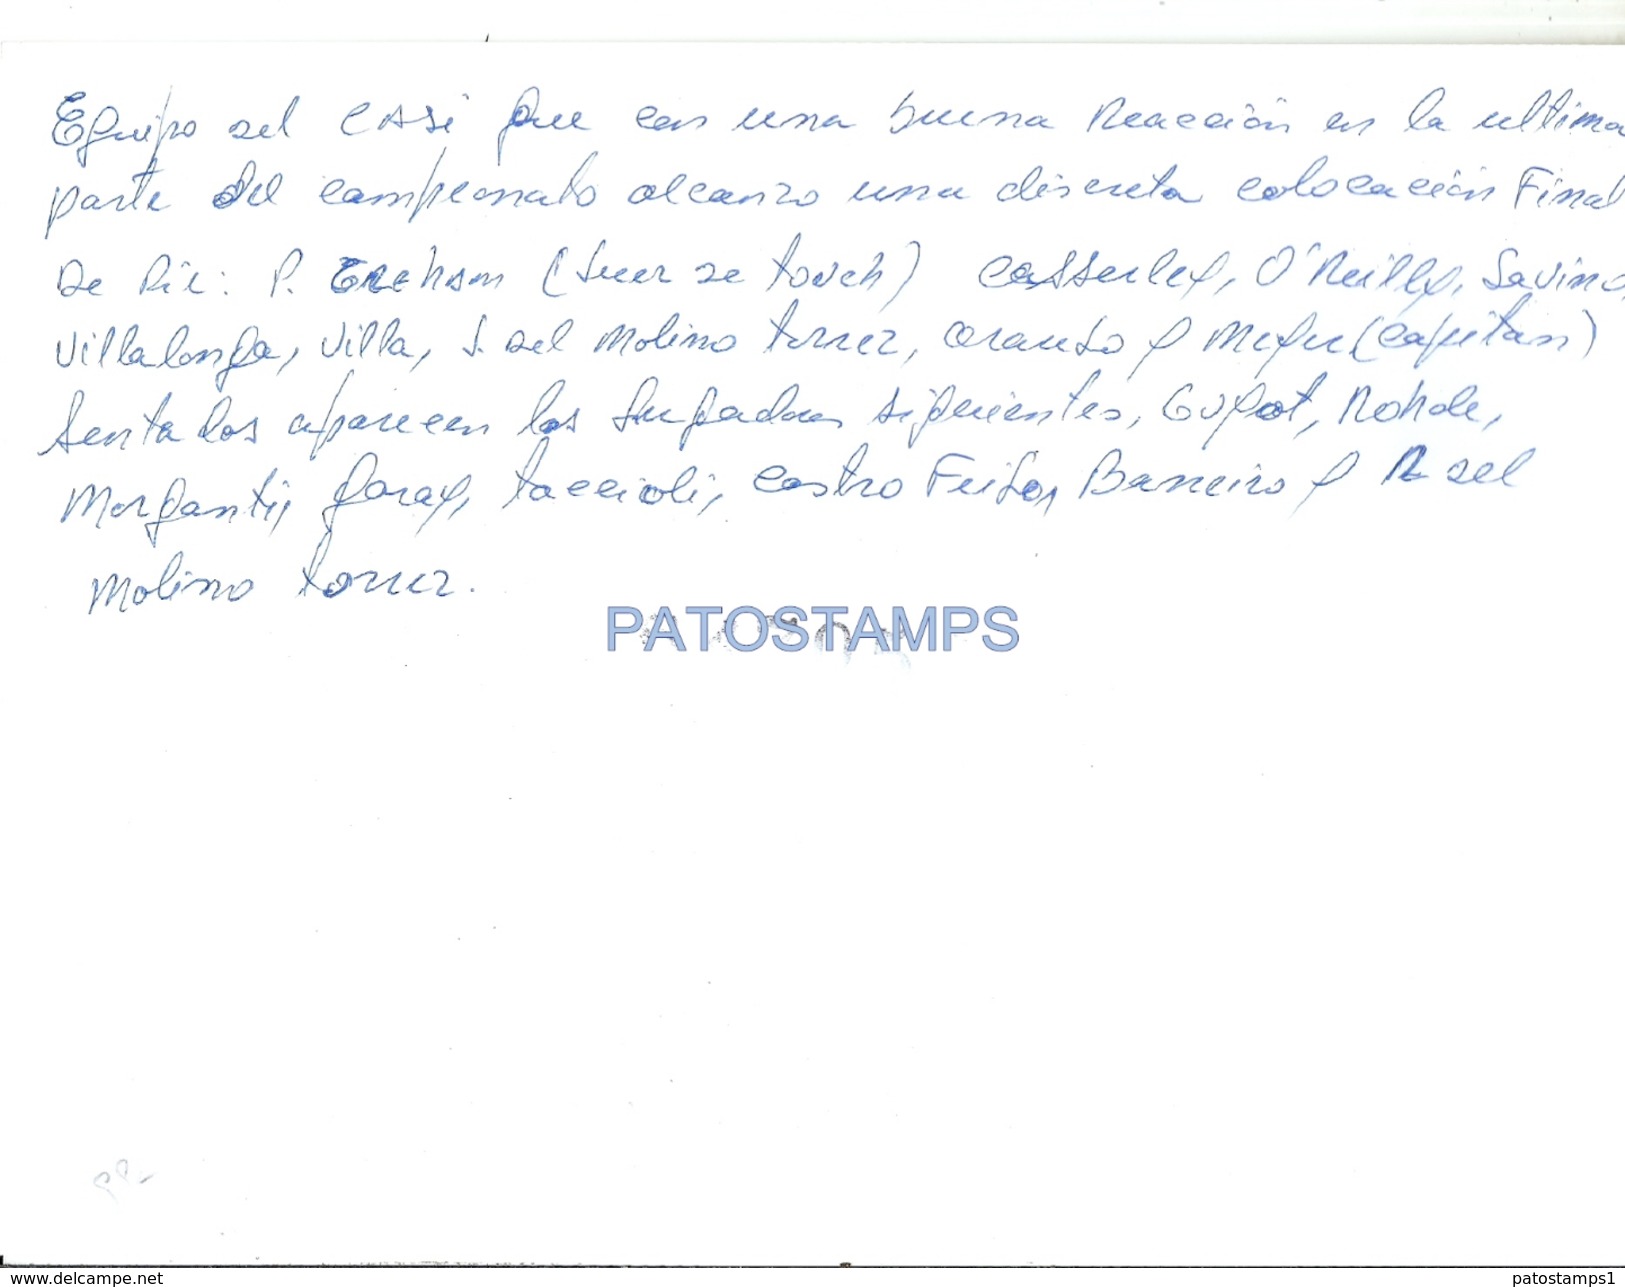 Equipo del CASI que con una buena Reacción en la ultima
parte del campeonato alcanzo una discreta colocación Final
De Pie: P. (Juez de touch) Casserley, O'Reilly, Savino,
Villalonga, Villa, J. del Molino torrez, y (capitan)
Sentados aparecen los Jugadores siguientes, Guyot, Rohde,
Morganti, garay, taccioli, castro Feijo, Barreiro y R del
Molino torrez.
PATOSTAMPS
www.delcampe.net
patostamps1